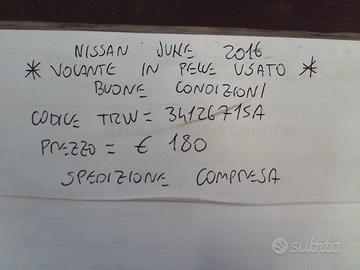 NISSAN JUKE 2016
* VOLANTE IN PELLE USATO *
BUONE CONDIZIONI
CODICE TRW = 34126715A
PREZZO = € 180
SPEDIZIONE COMPRESA
subito